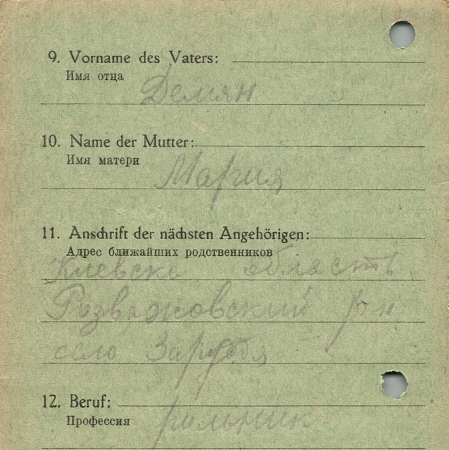 9. Vorname des Vaters:
Имя отца
Демян
10. Name der Mutter:
Имя матери
Мария
11. Anschrift der nächsten Angehörigen:
Адрес ближайших родственников
Киевске область
Розважовский р-н
село Зарудя
12. Beruf:
Профессия
рильник